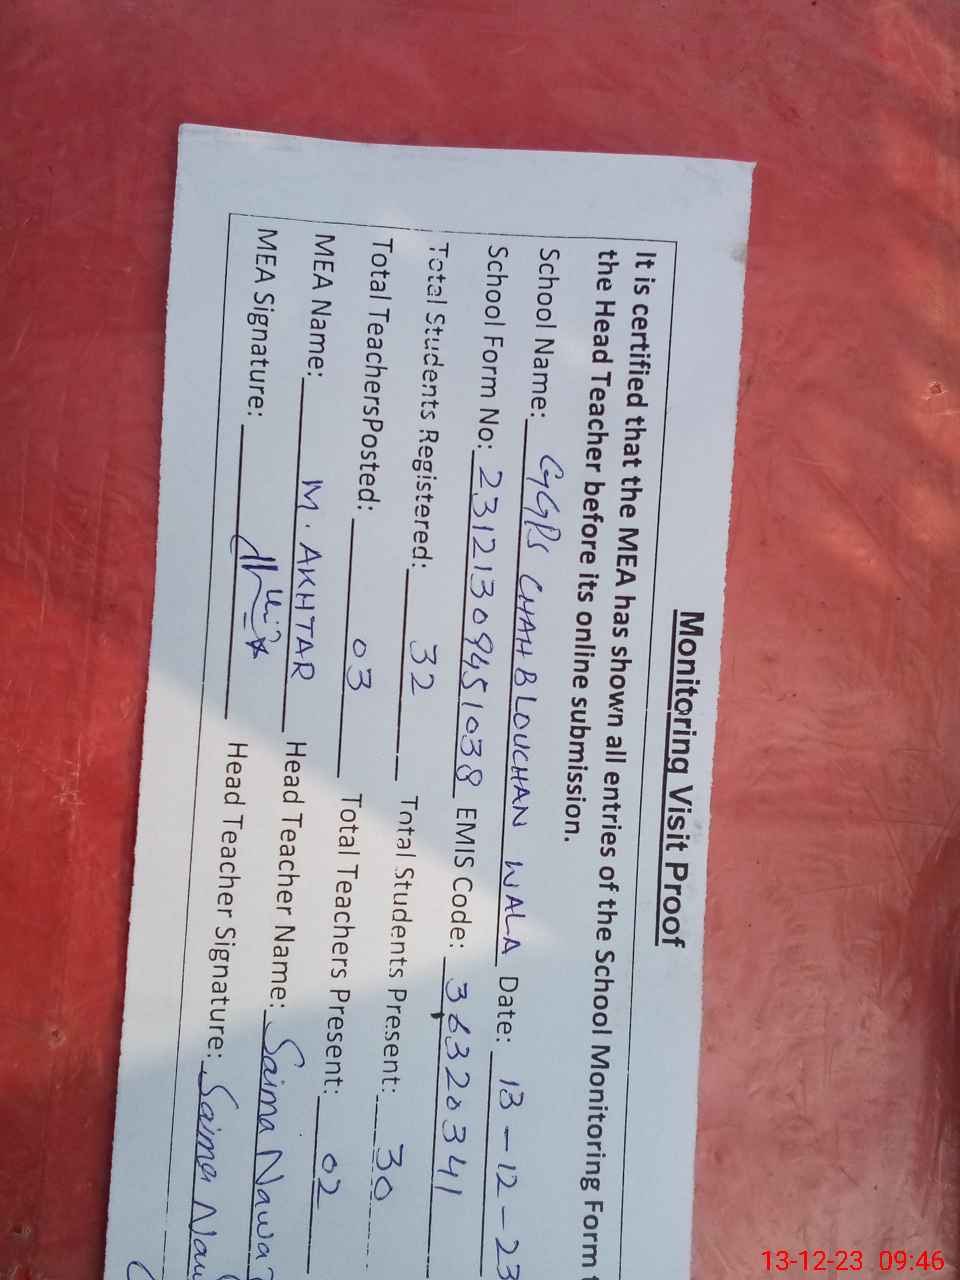 Monitoring Visit Proof
It is certified that the MEA has shown all entries of the School Monitoring Form t
the Head Teacher before its online submission.
School Name: GGPS CHAH BLOUCHAN WALA Date: 13-12-23
School Form No: 23121309451038 EMIS Code: 36320341
Total Students Registered: 32 Total Students Present: 30
Total TeachersPosted: 03 Total Teachers Present: 02
MEA Name: M. AKHTAR Head Teacher Name: Saima Nawa
MEA Signature: Head Teacher Signature: Saima Naw
13-12-23 09:46